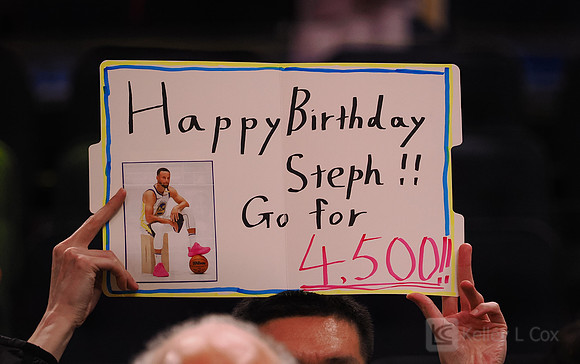 Happy Birthday
Steph !!
Go for
4,500!!
KC Keller L Cox